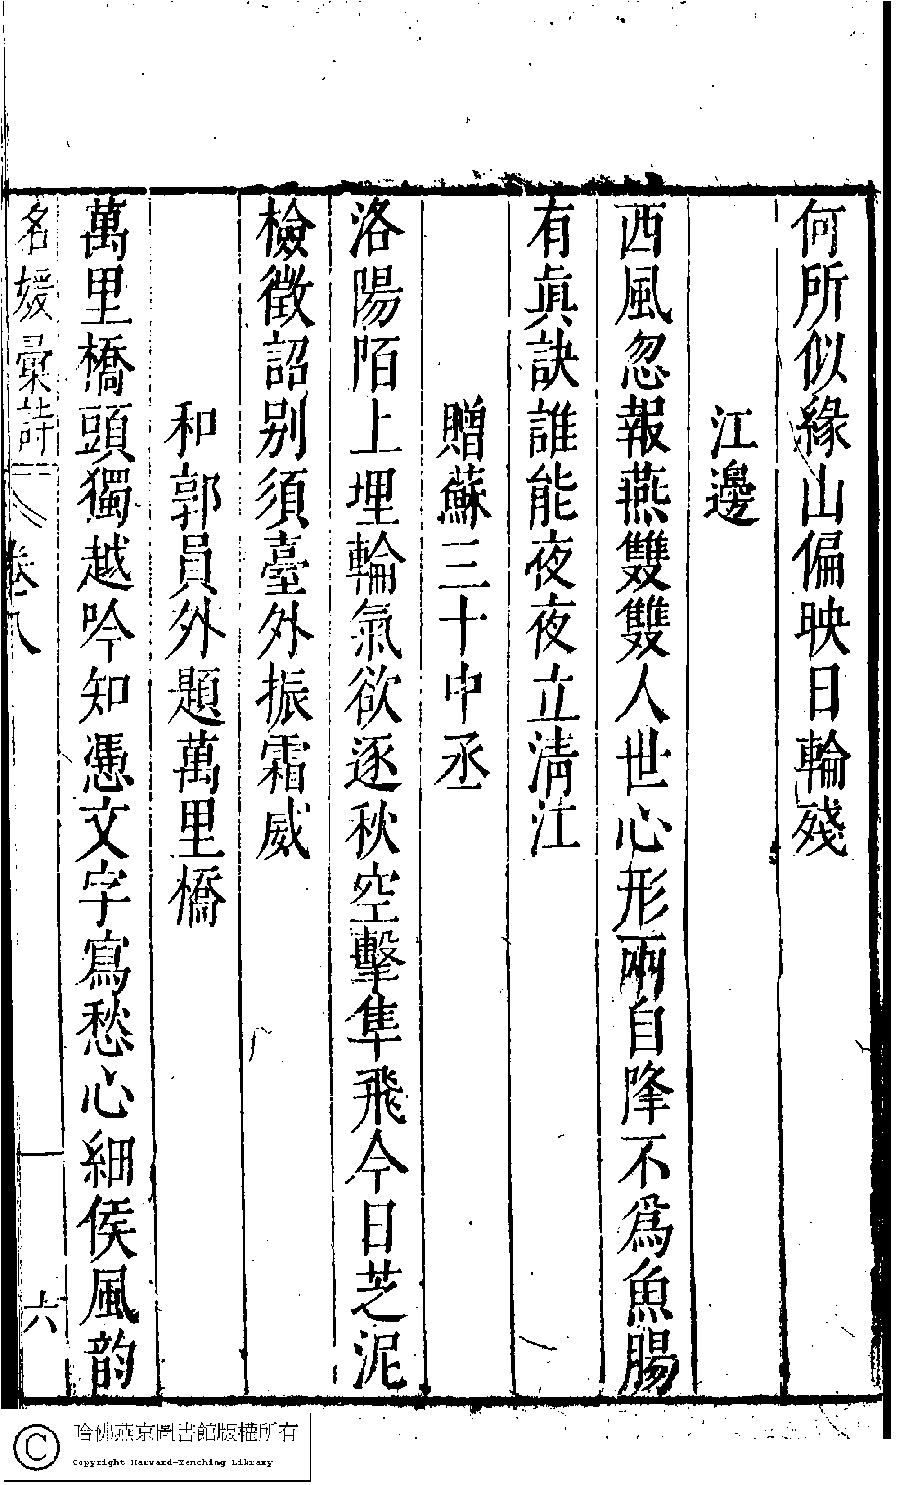 何所似緣山偏映日輪殘
江邊
西風忽報燕雙雙人世心形兩自降不爲魚腸
有眞訣誰能夜夜立淸江
贈蘇三十中丞
洛陽陌上埋輪氣欲逐秋空擊隼飛今日芝泥
檢徵詔別須臺外振霜威
和郭員外題萬里橋
萬里橋頭獨越吟知憑文字寫愁心細侯風韵
名媛彙詩 卷八 六
哈佛燕京圖書館版權所有
Copyright Harvard-Yenching Library